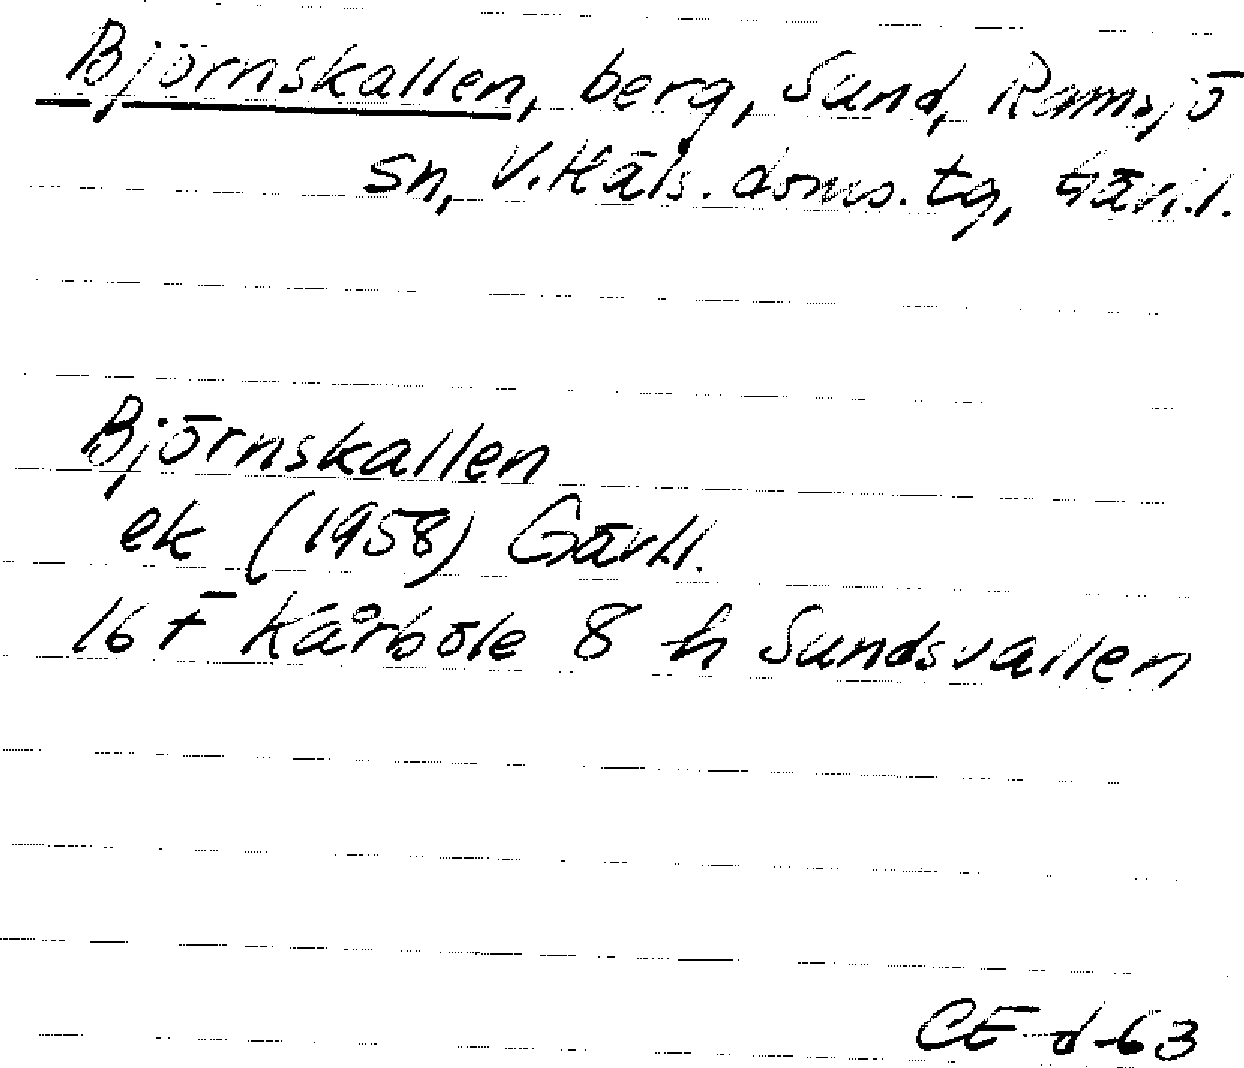 Björnskallen, berg, Sund, Ramsjö
sn, V. Häls. doms. tg, Gävl.l.
Björnskallen
ek (1958) Gävl.l.
16 F Kårböle 8 h Sundsvallen
CE d-63